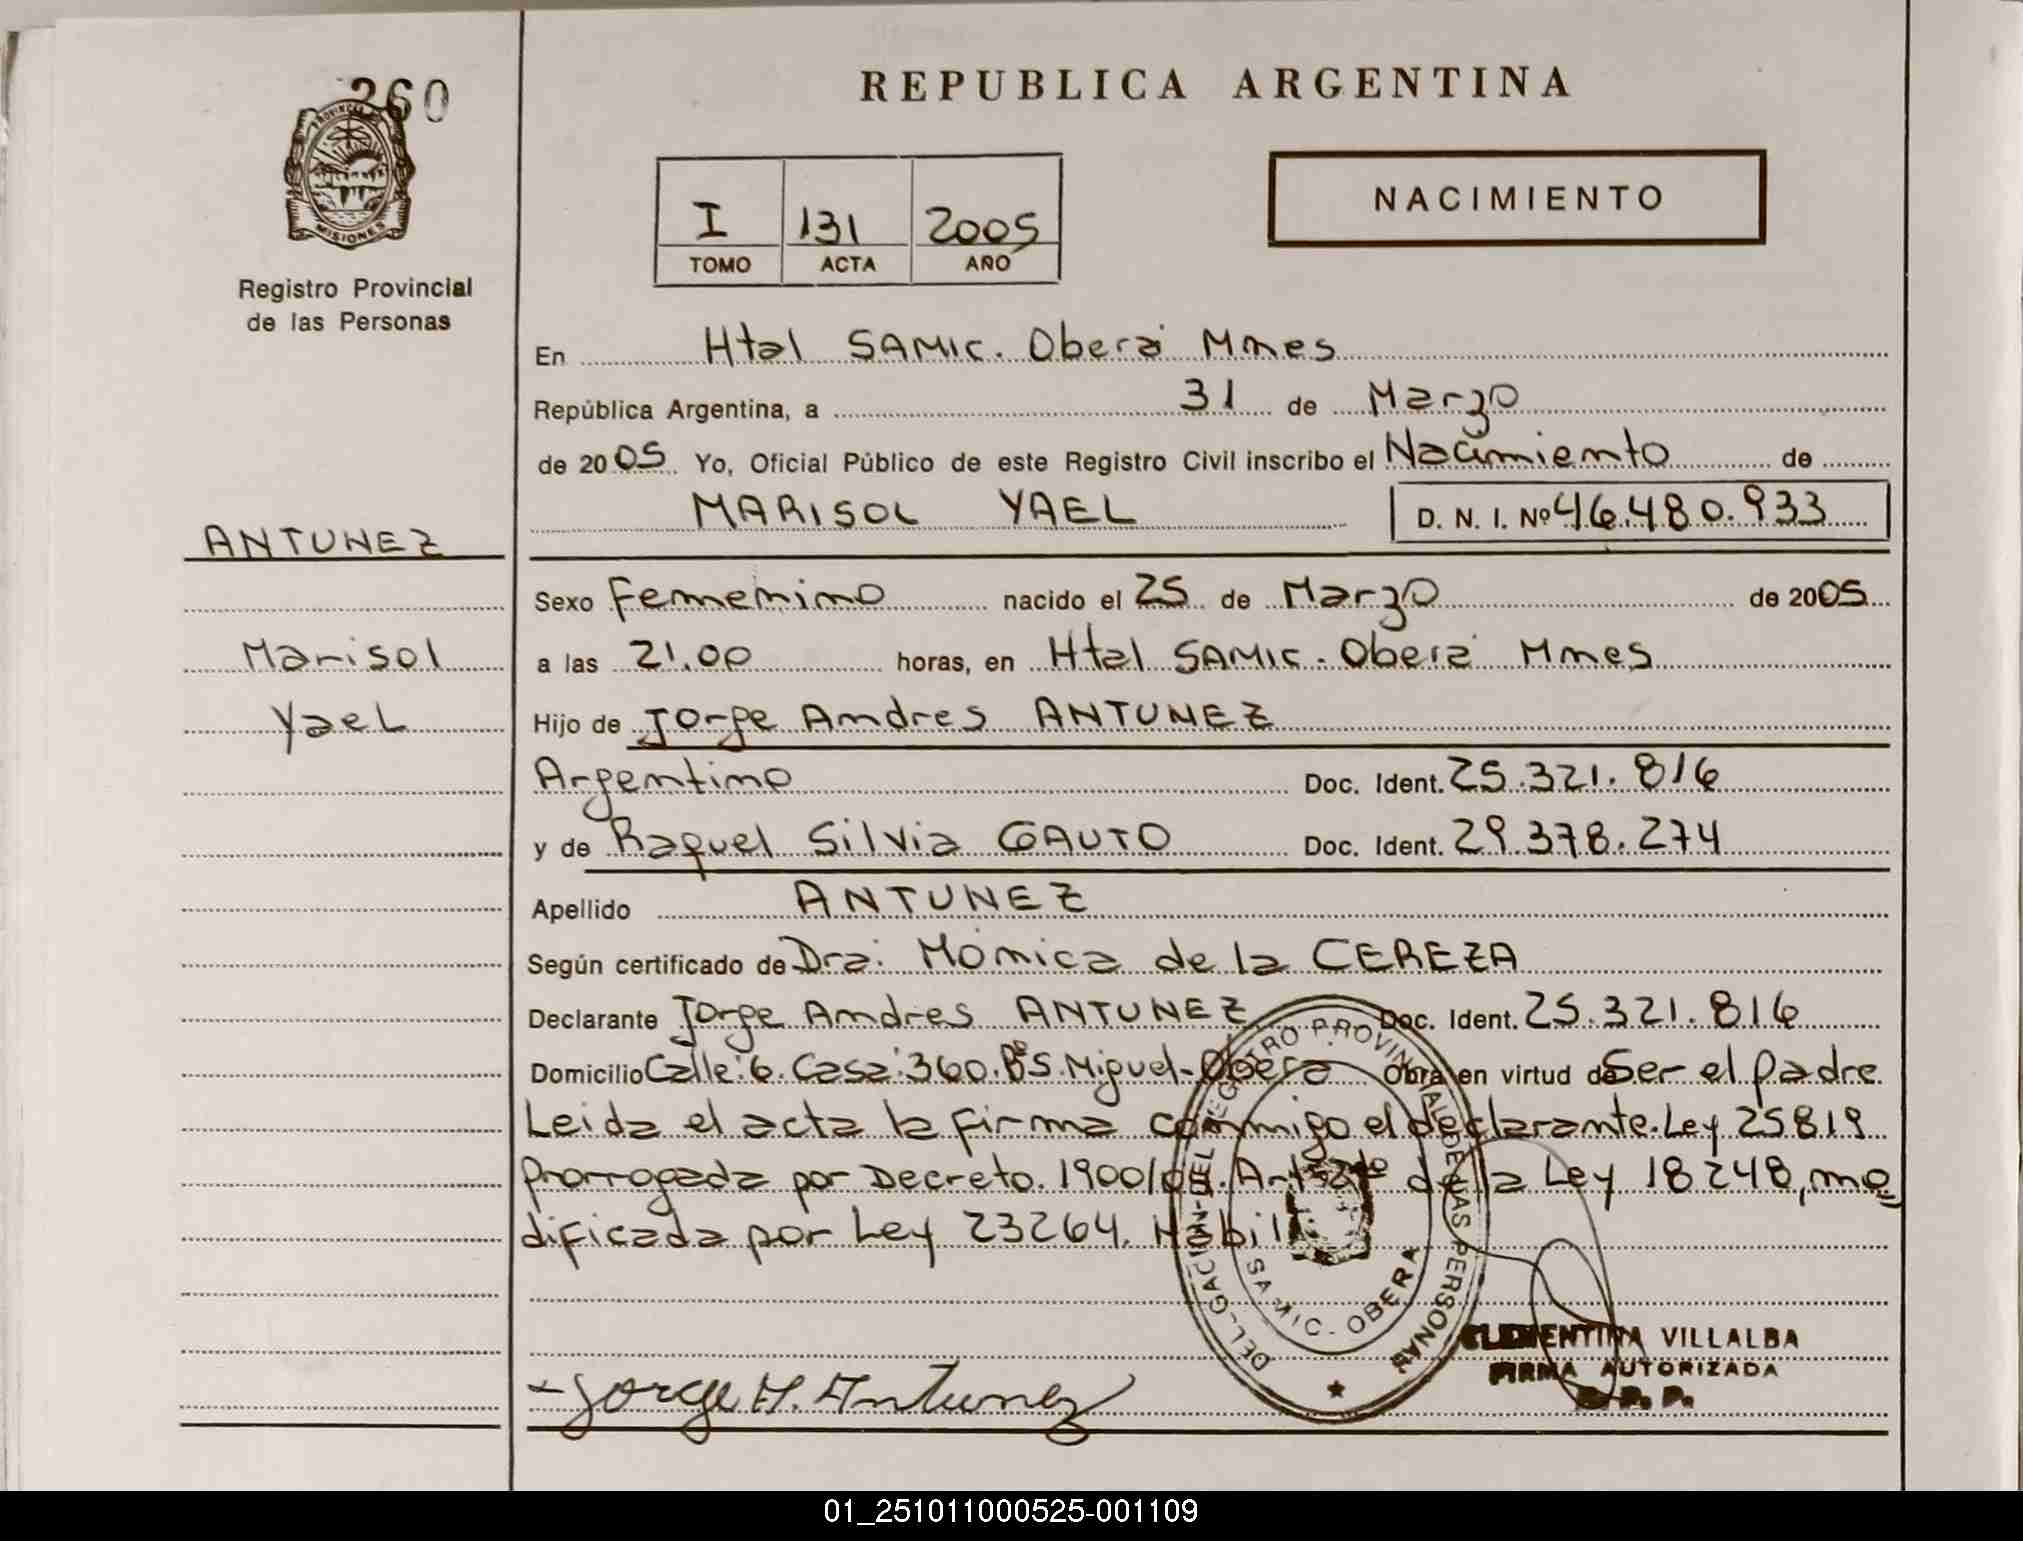 260
REPUBLICA ARGENTINA
PROVINCIA DE
MISIONES
Registro Provincial
de las Personas
I 131 2005
TOMO ACTA AÑO
NACIMIENTO
En Htal SAMIC. Oberá Mnes
República Argentina, a 31 de Marzo
de 2005 Yo, Oficial Público de este Registro Civil inscribo el Nacimiento de
MARISOL YAEL D. N. I. Nº 46.480.933
ANTUNEZ
Marisol
Yael
Sexo Femenino nacido el 25 de Marzo de 2005
a las 21.00 horas, en Htal SAMIC. Oberá Mnes
Hijo de Jorge Andres ANTUNEZ
Argentino Doc. Ident. 25.321.816
y de Raquel Silvia GAUTO Doc. Ident. 29.378.274
Apellido ANTUNEZ
Según certificado de Dra: Mónica de la CEREZA
Declarante Jorge Andres ANTUNEZ Doc. Ident. 25.321.816
Domicilio Calle: 6. Casa: 360. Bº S. Miguel-Oberá Obra en virtud de Ser el padre
Leida el acta la firma conmigo el declarante. Ley 25819
prorrogada por Decreto. 1900/ de la Ley 18248, mo
dificada por Ley 23264. Habil
REGISTRO PROVINCIAL DE LAS PERSONAS
SAMIC - OBERA
Jorge A. Antunez
CLEMENTINA VILLALBA
FIRMA AUTORIZADA
R. P. P.
01_251011000525-001109